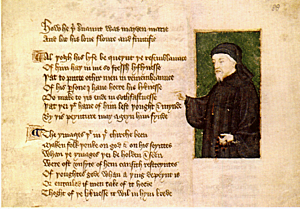 How he þi seruaunt was mayden marie
And lat his loue floure and fructifie
Al þogh his lyfe be queynt þe resemblaunce
Of him haþ in me so fressh lyflynesse
Þat to putte othir men in remembraunce
Of his persone I haue heere his lyknesse
Do make to þis ende in sothfastnesse
Þat þei þt haue of him lest þought & mynde
By þis peynture may ageyn him fynde
The ymages þt in þe chirche been
Maken folk þenke on god & on his seyntes
Whan þe ymages þei be holden & seen
Were oft unsyte of hem causith restreyntes
Of þoughtes gode whan a þing depeynt is
Or entailed if men take of it heede
Thoght of þe lyknesse it wil in hym brede